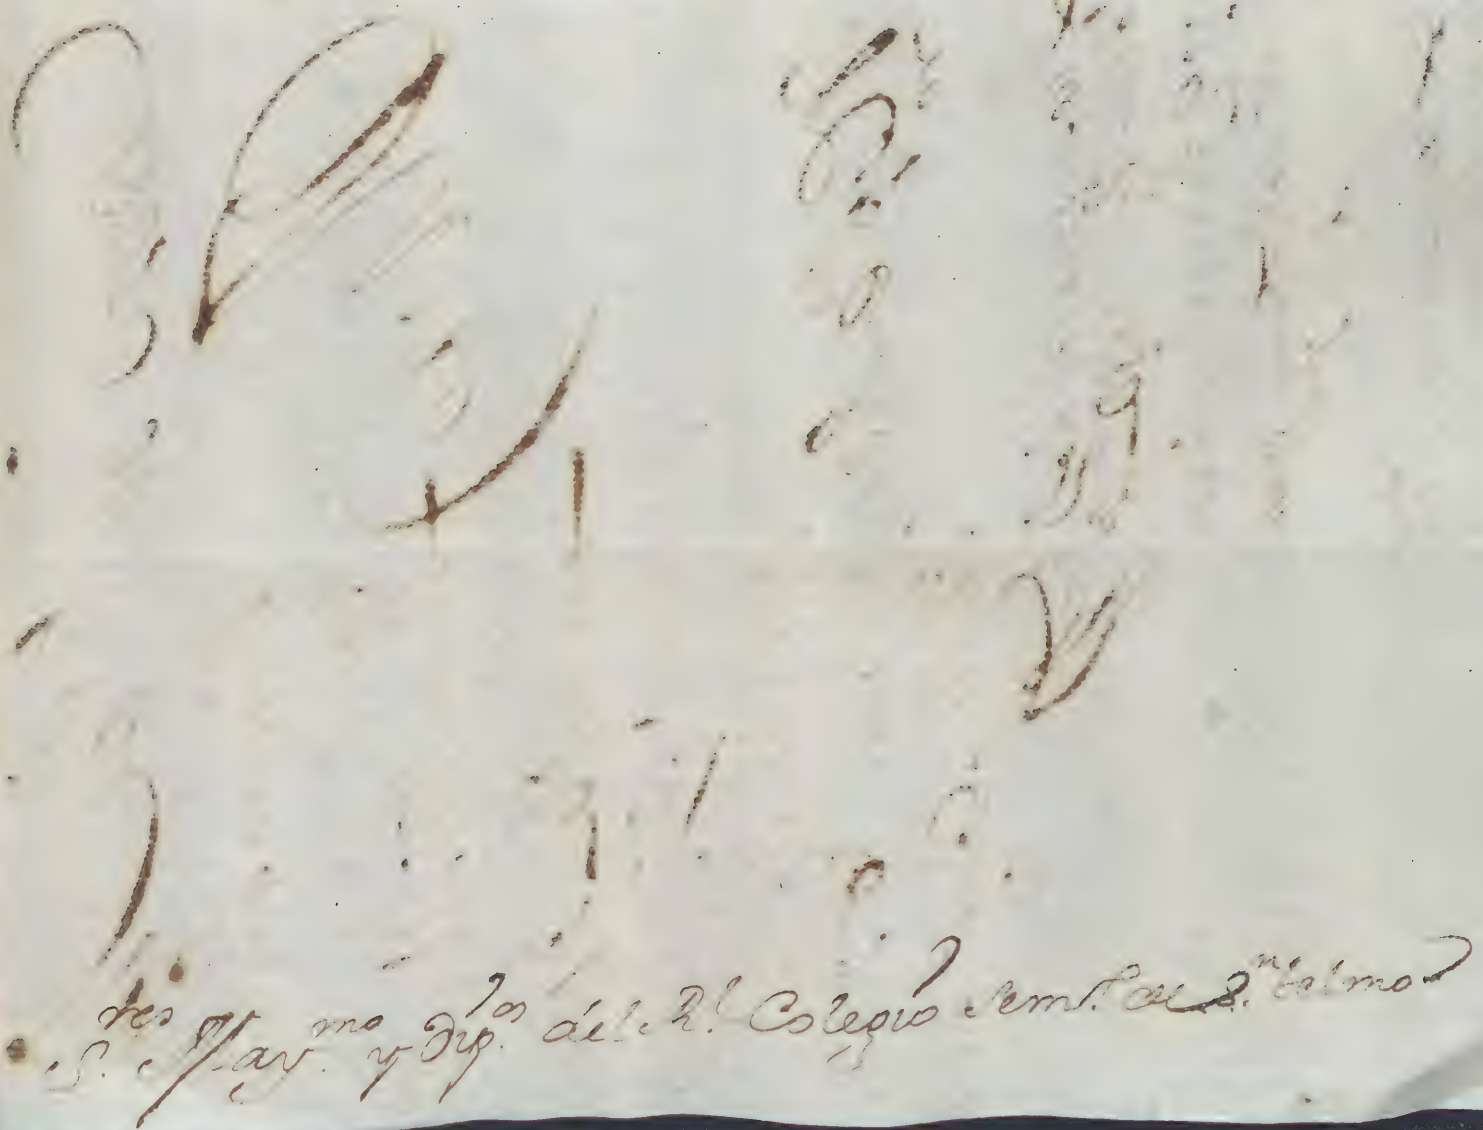 S.res May.mo y Dip.dos del R.l Colegio Sem.o de S.n Telmo